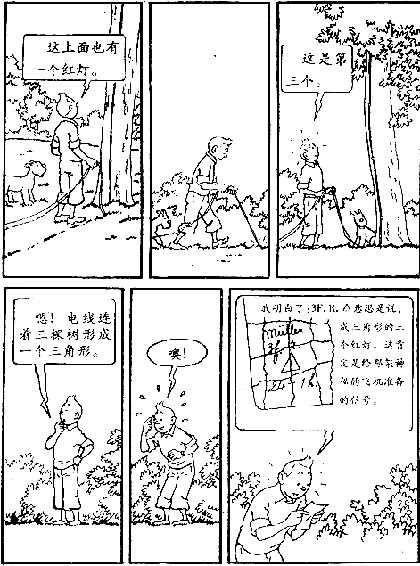 这上面也有
一个红灯。
这是第
三个。
嗯！电线连
着三棵树形成
一个三角形。
噢！
我明白了:3F.R.△意思是说,
Müller
3f.
成三角形的三
个红灯。这肯
定是给那架神
秘的飞机准备
的信号。
24 1h.